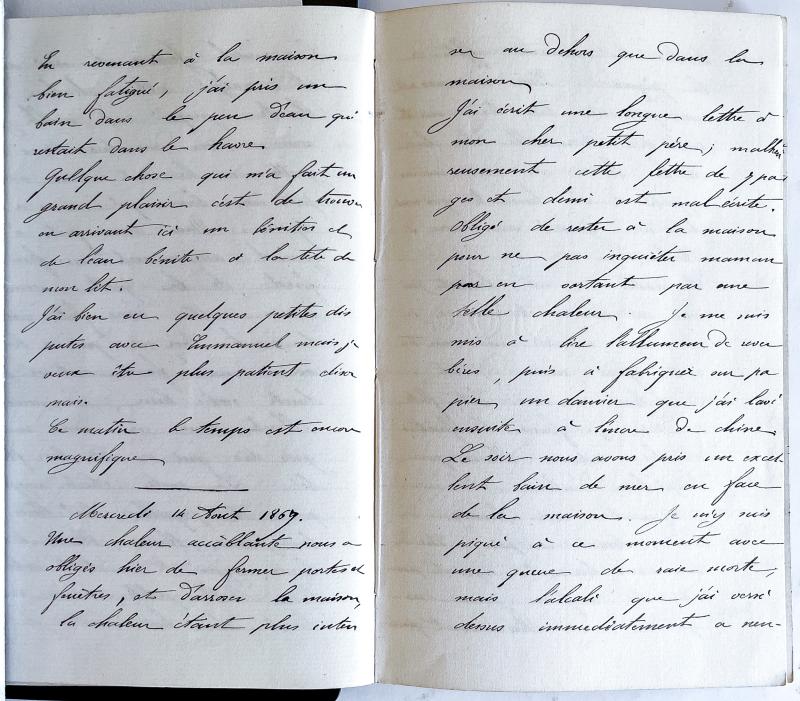 En revenant à la maison
bien fatigué, j'ai pris un
bain dans le peu d'eau qui
restait dans le havre
Quelque chose qui m'a fait un
grand plaisir c'est de trouver
en arrivant ici un bénitier et
de l'eau bénite à la tete de
mon lit.
J'ai bien eu quelques petites dis
putes avec Emmanuel mais je
veux être plus patient désor
mais.
Ce matin le temps est encore
magnifique
Mercredi 14 Aout 1867.
Une chaleur accâblante nous a
obligés hier de fermer portes et
fenêtres, et d'arroser la maison,
la chaleur étant plus inten
se au dehors que dans la
maison
J'ai écrit une longue lettre à
mon cher petit père; malheu
reusement cette lettre de 7 pa
ges et demi est mal écrite.
Obligé de rester à la maison
pour ne pas inquiéter maman
en sortant par une
telle chaleur. Je me suis
mis à lire l'allumeur de rever
bères, puis à fabriquer sur pa
pier un damier que j'ai lavé
ensuite à l'encre de chine
Le soir nous avons pris un excel
lent bain de mer en face
de la maison. Je m'y suis
piqué à ce moment avec
une queue de raie morte,
mais l'alcali que j'ai versé
dessus immediatement a neu-